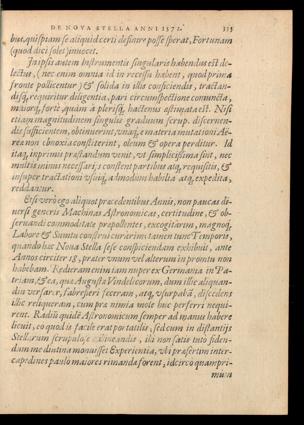 DE NOVA STELLA ANNI 1572.
bus, quispiam se aliquid certi definire posse sperat, Fortunam
(quod dici solet) invocet.
In ipsis autem Instrumentis singularis habendus est de-
lectus, (nec enim omnia id in recessu habent, quod prima
fronte pollicentur) & solida in illis conficiendis, tractan-
disq́, requiritur diligentia, pari circumspectione comuncta,
maiorq́, forte quam à plerisq́, hactenus æstimata est. Nisi
etiam magnitudinem singulis graduum scrup. discernen-
dis sufficientem, obtinuerint, unaq́, e materia mutationi Aë-
rea non obnoxia constiterint, oleum & opera perditur. Id
itaq́, inprimis præstandum venit, ut simplicissima sint, nec
multis minime necessarijs constent partibus atq́, requisitis, &
insuper tractationi usuiq́, admodum habilia atq́, expedita,
reddantur.
Etsi verò ego aliquot præcedentibus Annis, non paucas di-
versi generis Machinas Astronomicas, certitudine, & ob-
servandi commoditate præpollentes, excogitarim, magnoq́,
Labore & Sumtu construi curarim: tamen tunc Temporis,
quando hæc Nova Stella sese conspiciendam exhibuit, ante
Annos circiter 18, præter unum vel alterum in promtu non
habebam. Redieram enim tam nuper ex Germania in Pa-
triam, & ea, quæ Augustæ Vindelicorum, dum illic aliquan-
diu versarer, fabrefieri feceram, atq́, usurpabā, discedens
illic reliqueram, cum præ nimia mole huc perferri nequi-
rent. Radiū quidē Astronomicum semper ad manus habere
licuit, eo quod is facile erat portatilis, sed cum in distantijs
Stellarum scrupulose dimetiendis, illi non satis tuto fiden-
dum me diutina monuisset Experientia, ubi præsertim inter-
capedines paulo maiores rimandæ forent, idcirco quampri-
mum